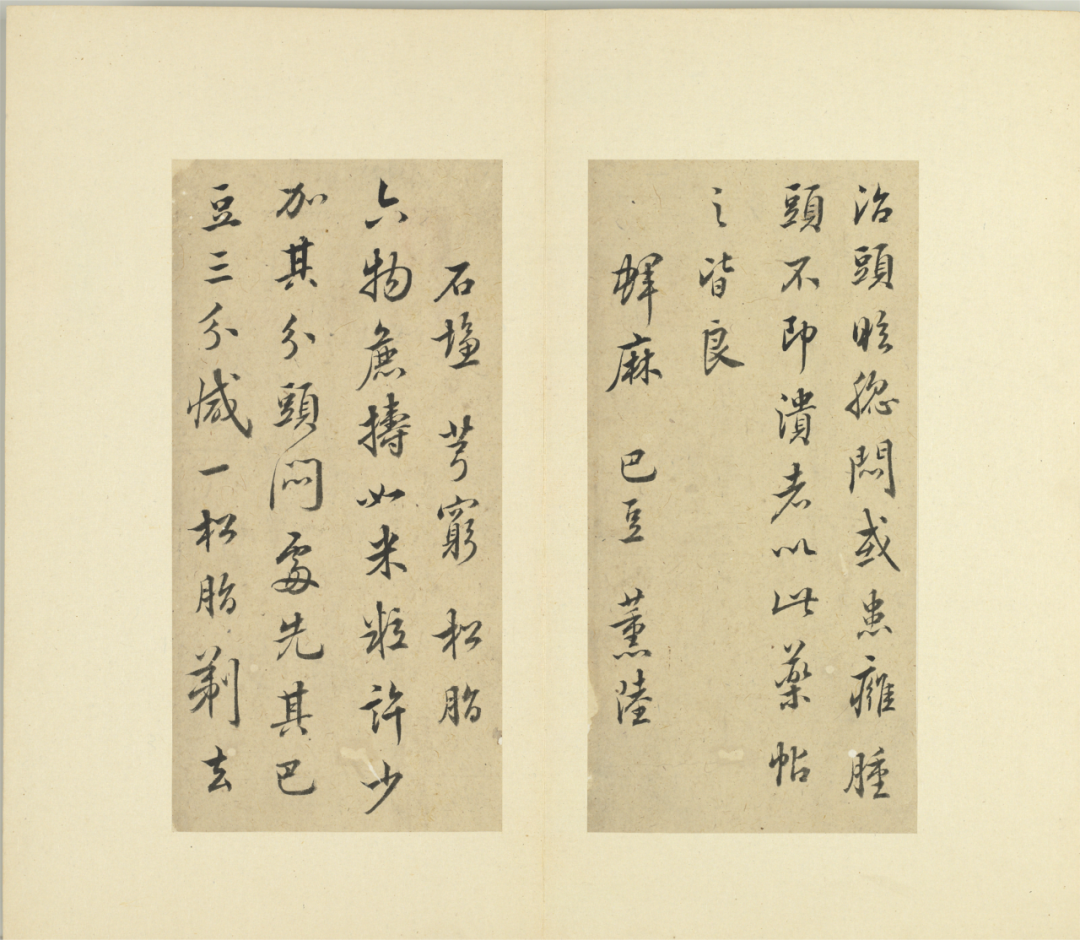 治頭眩㧾悶或患癰腫
頭不即潰者以此藥帖
之皆良
蜱麻 巴豆 薰陸
石塩 芎窮 松脂
六物麁擣如米粒許少
加其分頭悶處先其巴
豆三分減一松脂剃去